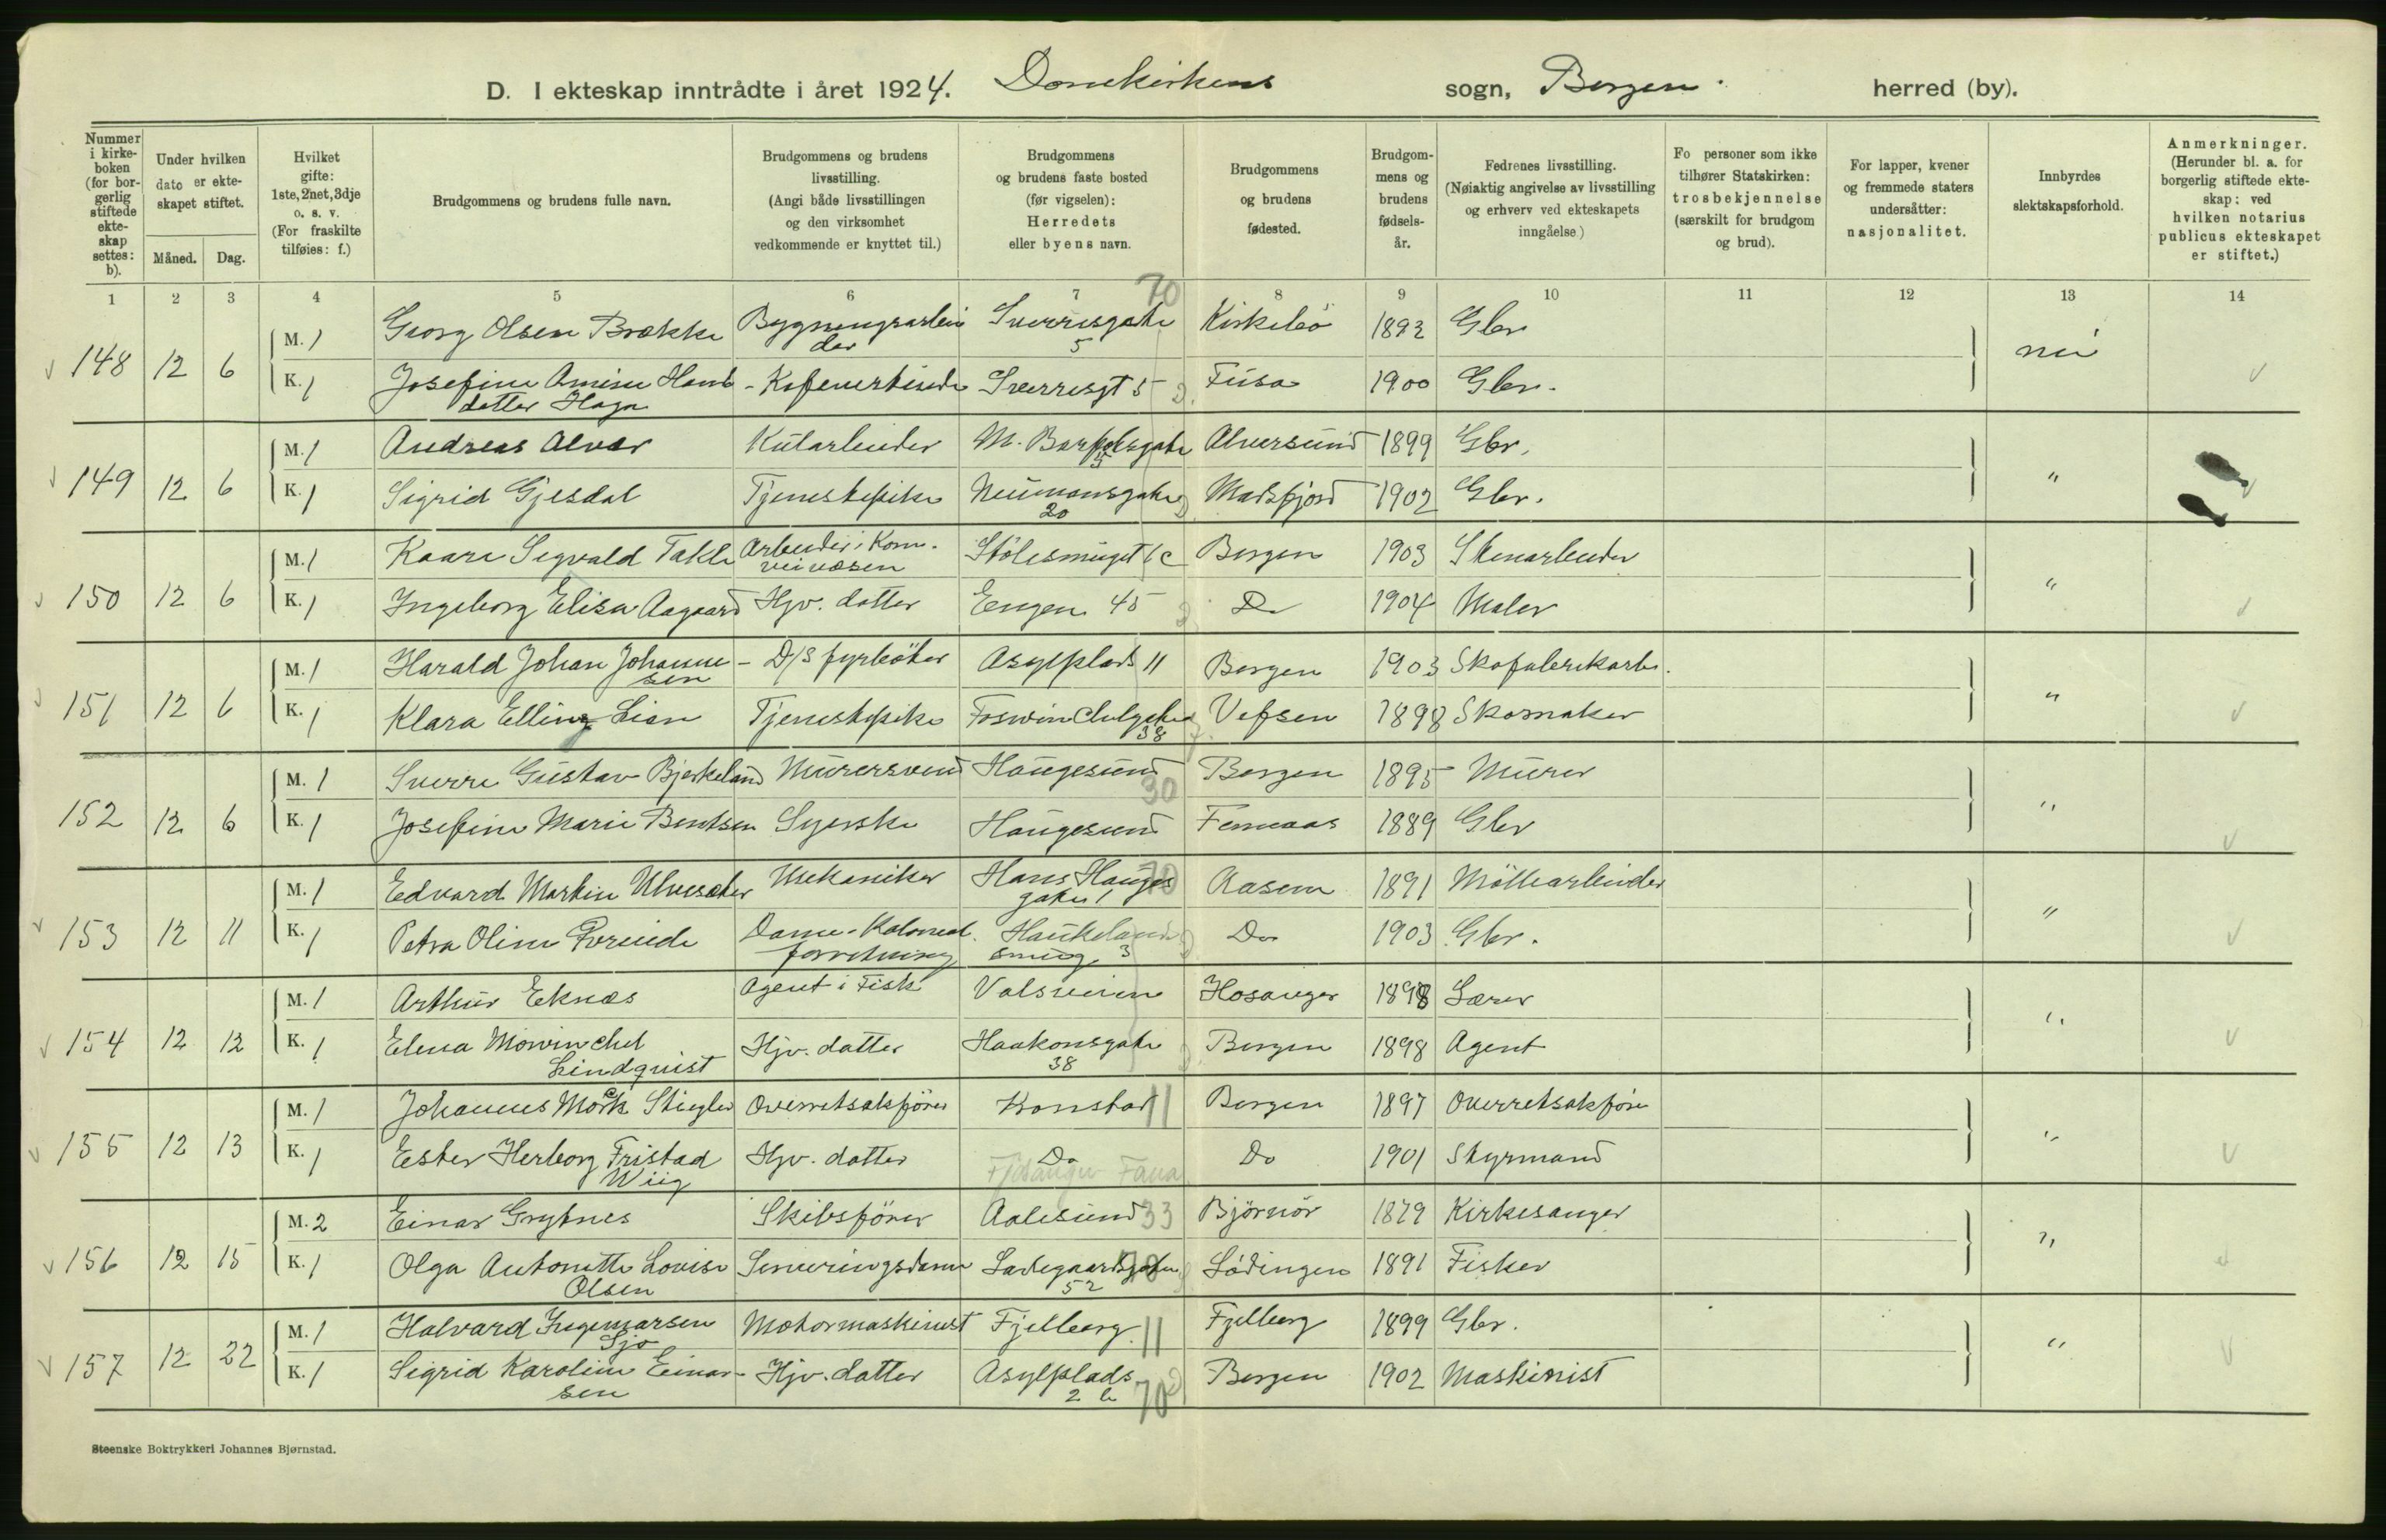 D. I ekteskap inntrådte i året 1924. Domkirkens sogn, Bergen herred (by).
Nummer i kirkeboken (for borgerlig stiftede ekteskap settes: b).
Under hvilken dato er ekteskapet stiftet.
Måned. Dag.
Hvilket gifte: 1ste, 2net, 3dje o. s. v. (For fraskilte tilføies: f.)
Brudgommens og brudens fulle navn.
Brudgommens og brudens livsstilling. (Angi både livsstillingen og den virksomhet vedkommende er knyttet til.)
Brudgommens og brudens faste bosted (før vigselen): Herredets eller byens navn.
Brudgommens og brudens fødested.
Brudgommens og brudens fødselsår.
Fedrenes livsstilling. (Nøiaktig angivelse av livsstilling og erhverv ved ekteskapets inngåelse.)
Fo personer som ikke tilhører Statskirken: trosbekjennelse (særskilt for brudgom og brud).
For lapper, kvener og fremmede staters undersåtter: nasjonalitet.
Innbyrdes slektskapsforhold.
Anmerkninger. (Herunder bl. a. for borgerlig stiftede ekteskap: ved hvilken notarius publicus ekteskapet er stiftet.)
1 2 3 4 5 6 7 8 9 10 11 12 13 14
70
148 12 6 M. 1 Georg Olsen Brække Bygningsarbeider Sverresgate 5 Kirkebö 1892 Gbr. nei
K. 1 Josefine Amine Hansdatter Haga Sverresgt 5 Fusa 1900 Gbr.
149 12 6 M. 1 Andreas Alver Kularbeider Alversund 1899 Gbr. "
K. 1 Sigrid Gjesdal Tjenestepike Neumansgate 20 Masfjord 1902 Gbr.
150 12 6 M. 1 Kaare Sigvald Takle Arbeider i Kom. veivæsen Stölesmuget 6c Bergen 1903 Stenarbeider "
K. 1 Ingeborg Elisa Aagaard Hjv. datter Engen 45 Do 1904 Maler
151 12 6 M. 1 Harald Johan Johannesen D/S fyrböter Asylplads 11 Bergen 1903 Skofabrikarb. "
K. 1 Klara Elling Lian Tjenestepike Foswinckelgate 38 Vefsen 1898 Skomaker
152 12 6 M. 1 Sverre Gustav Bjerkeland Murersvend Haugesund 30 Bergen 1895 Murer "
K. 1 Josefine Marie Bentsen Syerske Haugesund 1889 Gbr
153 12 11 M. 1 Edvard Martin Ulvesæter Mekaniker Hans Hauges gate 1 70 Aasene 1891 Möllearbeider "
K. 1 Petra Oline Dame-Kolonialforretning Haukelandsmug 3 Do 1903 Gbr.
154 12 12 M. 1 Arthur Eknæs Agent i Fisk Valsveien Hosanger 1898 Lærer "
K. 1 Elena Mowinckel Lindquist Hjv. datter Haakonsgate 38 Bergen 1898 Agent
155 12 13 M. 1 Johannes Mörk Stiegler Overretsakförer Kronstad 11 Bergen 1897 Overretsakförer "
K. 1 Ester Herborg Fristad Wiig Hjv. datter Do Fjösanger Fana Do 1901 Styrmand
156 12 15 M. 2 Einar Grytnes Skibsförer Aalesund 33 Björnör 1879 Kirkesanger "
K. 1 Olga Antonette Lovise Olsen Serveringsdame Ladegaardsgaten 52 70 Lödingen 1891 Fisker
157 12 22 M. 1 Halvard Ingemarsen Sjo Motormaskinist Fjelberg 11 Fjelberg 1899 Gbr. "
K. 1 Sigrid Karoline Einarsen Hjv. datter Asylplads 2 b 70 Bergen 1902 Maskinist
Steenske Boktrykkeri Johannes Bjørnstad.